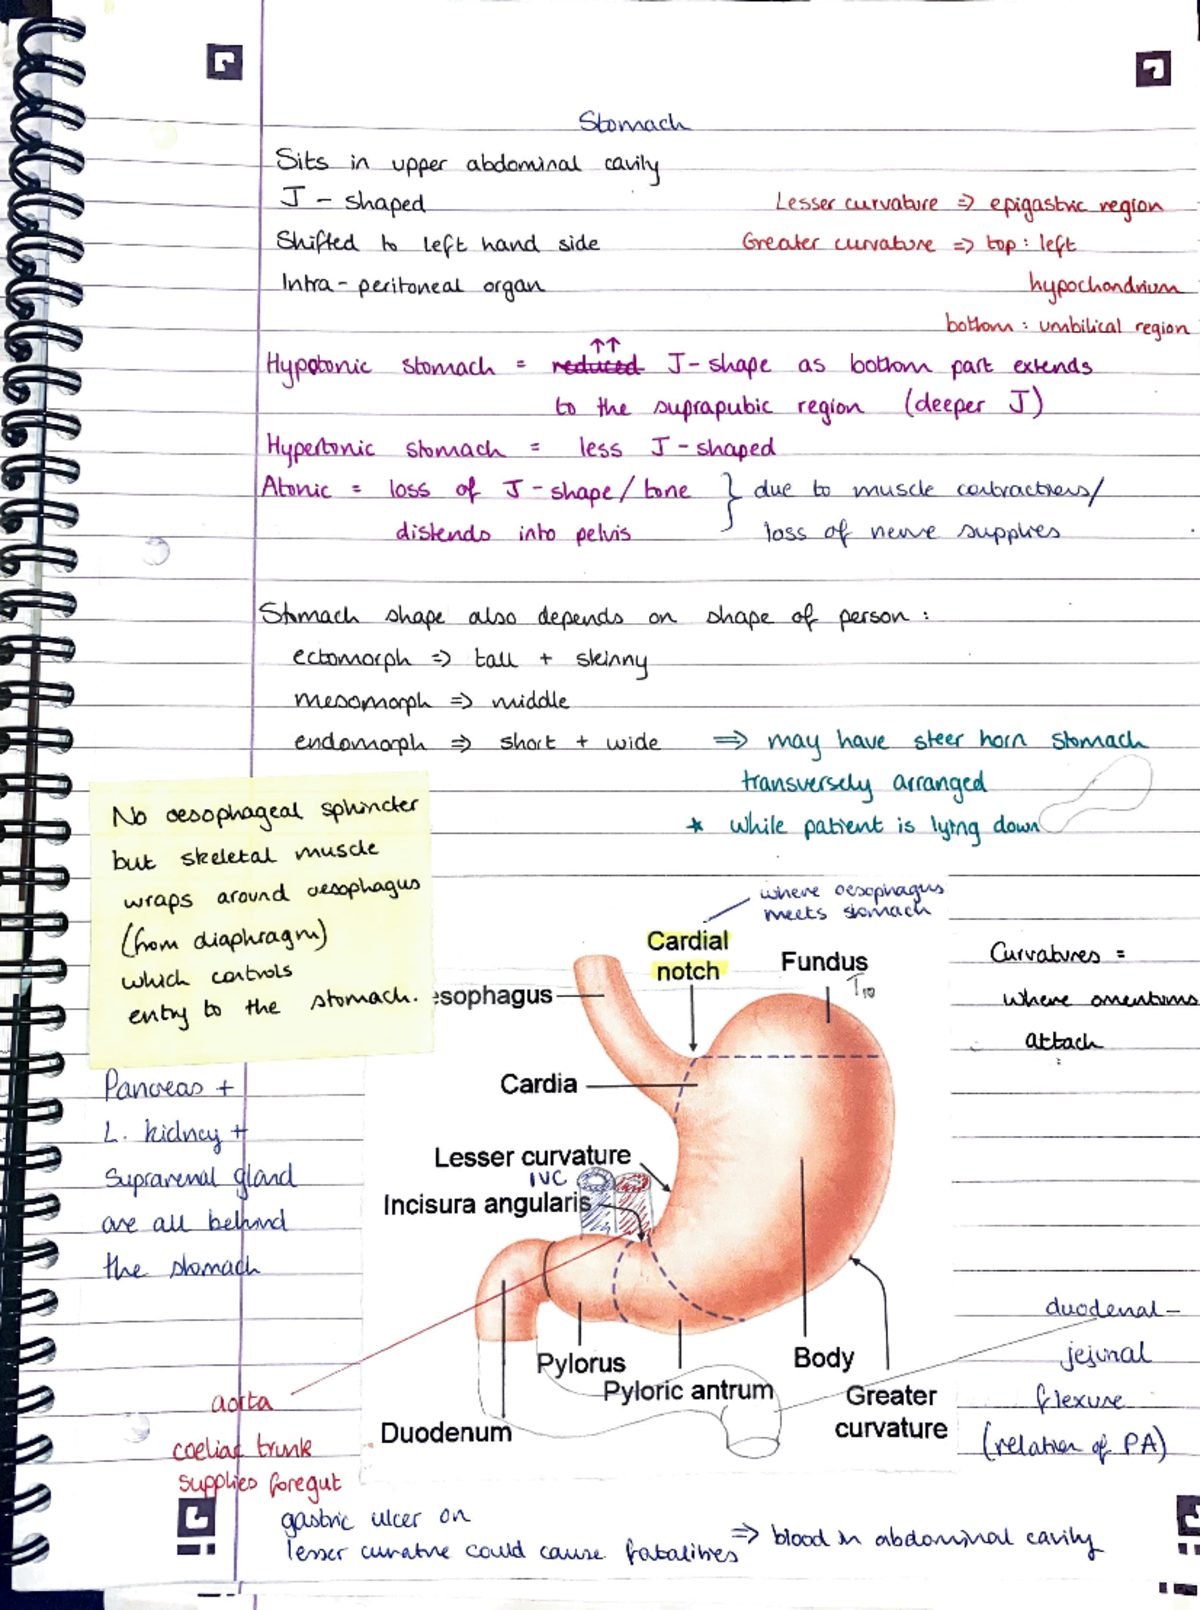 Stomach
Sits in upper abdominal cavity
J - shaped
Shifted to left hand side
Intra - peritoneal organ
Lesser curvature => epigastric region
Greater curvature => top : left
hypochondrium
bottom : umbilical region
↑↑
Hypotonic stomach = reduced J-shape as bottom part extends
to the suprapubic region (deeper J)
Hypertonic stomach = less J-shaped
Atonic = loss of J-shape/tone } due to muscle contractions/
distends into pelvis loss of nerve supplies
Stomach shape also depends on shape of person :
ectomorph => tall + skinny
mesomorph => middle
endomorph => short + wide => may have steer horn stomach
transversely arranged
* while patient is lying down
No oesophageal sphincter
but skeletal muscle
wraps around oesophagus
(from diaphragm)
which controls
entry to the stomach.
Pancreas +
L. kidney +
Suprarenal gland
are all behind
the stomach
where oesophagus
meets stomach
Cardial
notch
Fundus
T10
esophagus
Cardia
Lesser curvature
IVC
Incisura angularis
Curvatures =
where omentums
attach
Pylorus
Pyloric antrum
Body
Greater
curvature
Duodenum
duodenal-
jejunal
flexure
(relation of PA)
aorta
coeliac trunk
supplies foregut
gastric ulcer on
lesser curvatre could cause fatalities => blood in abdominal cavity